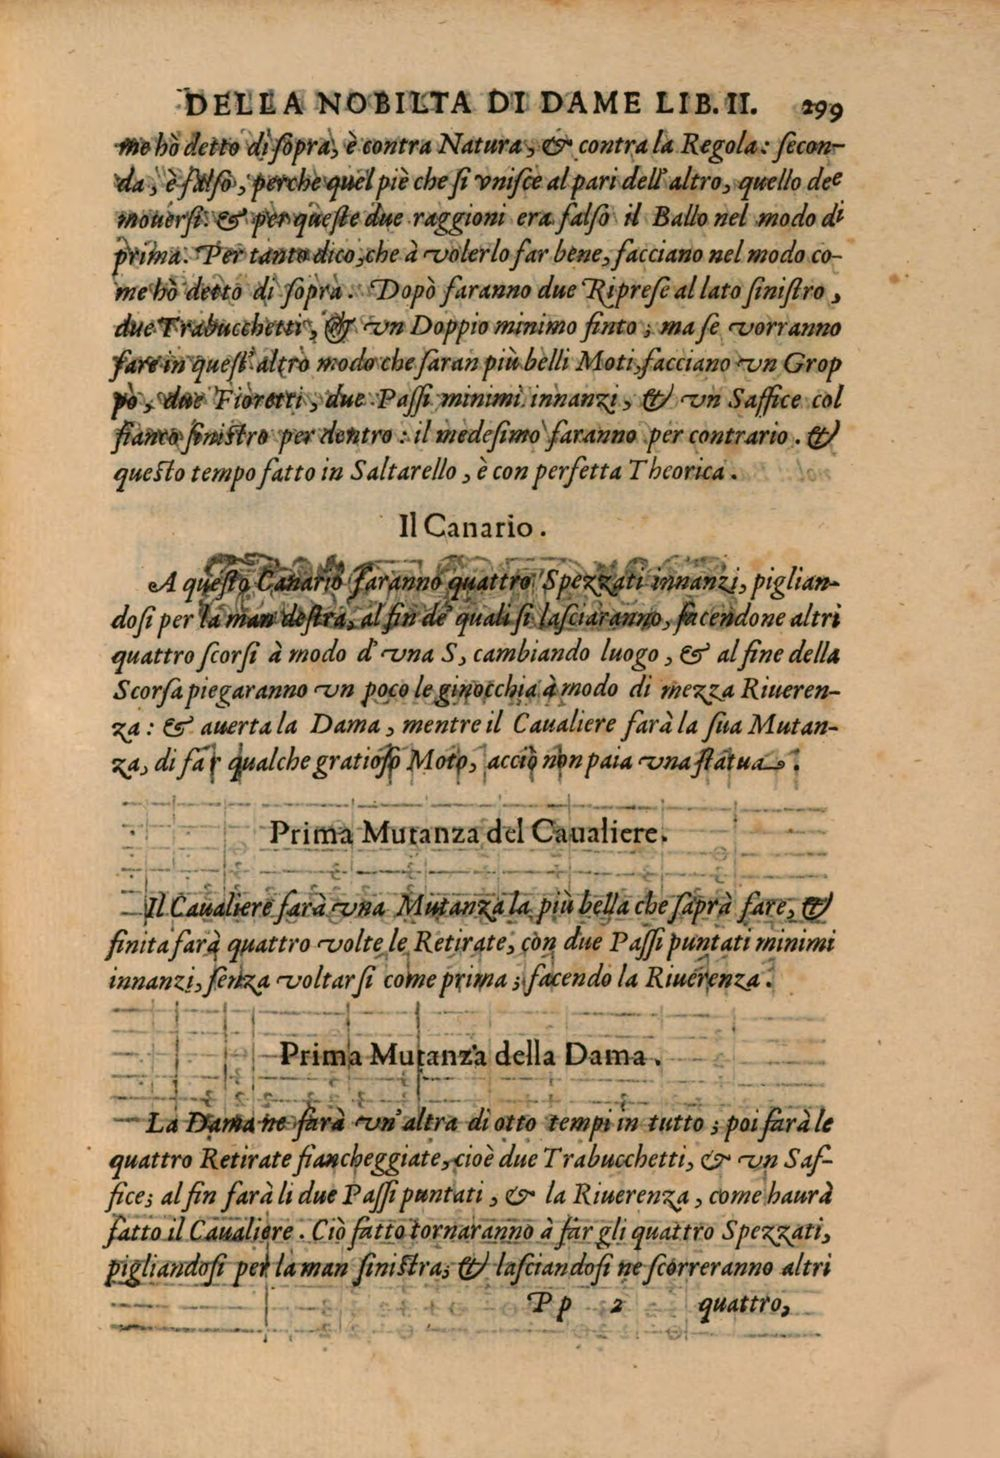 DELLA NOBILTA DI DAME LIB. II. 299
me hò detto di ſopra, è contra Natura, & contra la Regola: ſecon-
da, è falſo, perche quel piè che ſi vniſce al pari dell'altro, quello dee
mouerſi: & per queſte due raggioni era falſo il Ballo nel modo di
prima. Per tanto dico, che à volerlo far bene, facciano nel modo co-
me hò detto di ſopra. Dopò faranno due Ripreſe al lato ſiniſtro,
due Trabucchetti, & vn Doppio minimo finto; ma ſe vorranno
fare in queſt'altro modo che ſaran più belli Moti, facciano vn Grop
pò, due Fioretti, due Paſſi minimi innanzi, & vn Saffice col
fianco ſiniſtro per dentro: il medeſimo faranno per contrario. &
queſto tempo fatto in Saltarello, è con perfetta Theorica.
Il Canario.
A queſto Canario faranno quattro Spezzati innanzi, piglian-
doſi per la man deſtra, al fin de' quali ſi laſciaranno, facendone altri
quattro ſcorſi à modo d'vna S, cambiando luogo, & al fine della
Scorſa piegaranno vn poco le ginocchia à modo di mezza Riueren-
za: & auerta la Dama, mentre il Caualiere farà la ſua Mutan-
za, di far qualche gratioſo Moto, acciò non paia vna ſtatua.
Prima Mutanza del Caualiere.
Il Caualiere farà vna Mutanza la più bella che ſaprà fare, &
finita farà quattro volte le Retirate, con due Paſſi puntati minimi
innanzi, ſenza voltarſi come prima; facendo la Riuerenza.
Prima Mutanza della Dama.
La Dama ne farà vn'altra di otto tempi in tutto; poi farà le
quattro Retirate fiancheggiate, cioè due Trabucchetti, & vn Saf-
fice; al fin farà li due Paſſi puntati, & la Riuerenza, come haurà
fatto il Caualiere. Ciò fatto tornaranno à far gli quattro Spezzati,
pigliandoſi per la man ſiniſtra; & laſciandoſi ne ſcorreranno altri
Pp 2 quattro,